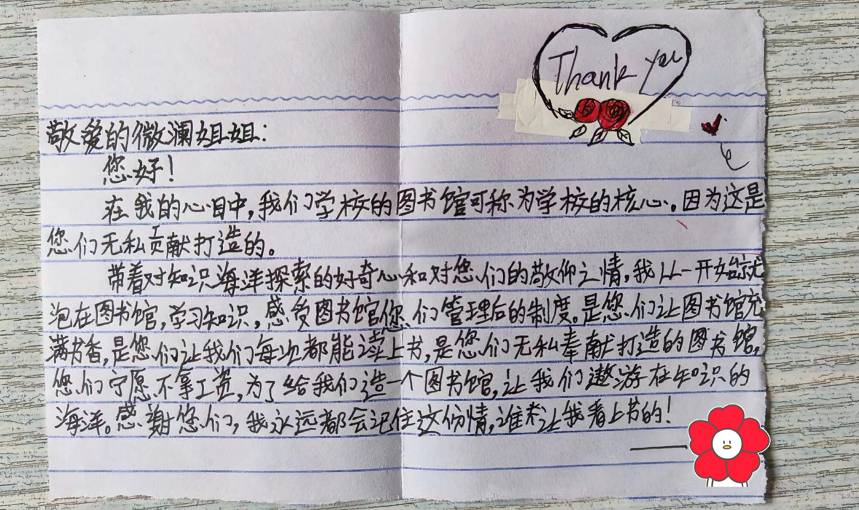 Thank you
敬爱的微澜姐姐:
您好!
在我的心目中,我们学校的图书馆可称为学校的核心。因为这是
您们无私贡献打造的。
带着对知识海洋探索的好奇心和对您们的敬仰之情,我从一开始就
泡在图书馆,学习知识,感受图书馆您们管理后的制度。是您们让图书馆充
满书香,是您们让我们每次都能读上书,是您们无私奉献打造的图书馆,
您们宁愿不拿工资,为了给我们造一个图书馆,让我们遨游在知识的
海洋。感谢您们,我永远都会记住这份情,谁来让我看上书的!